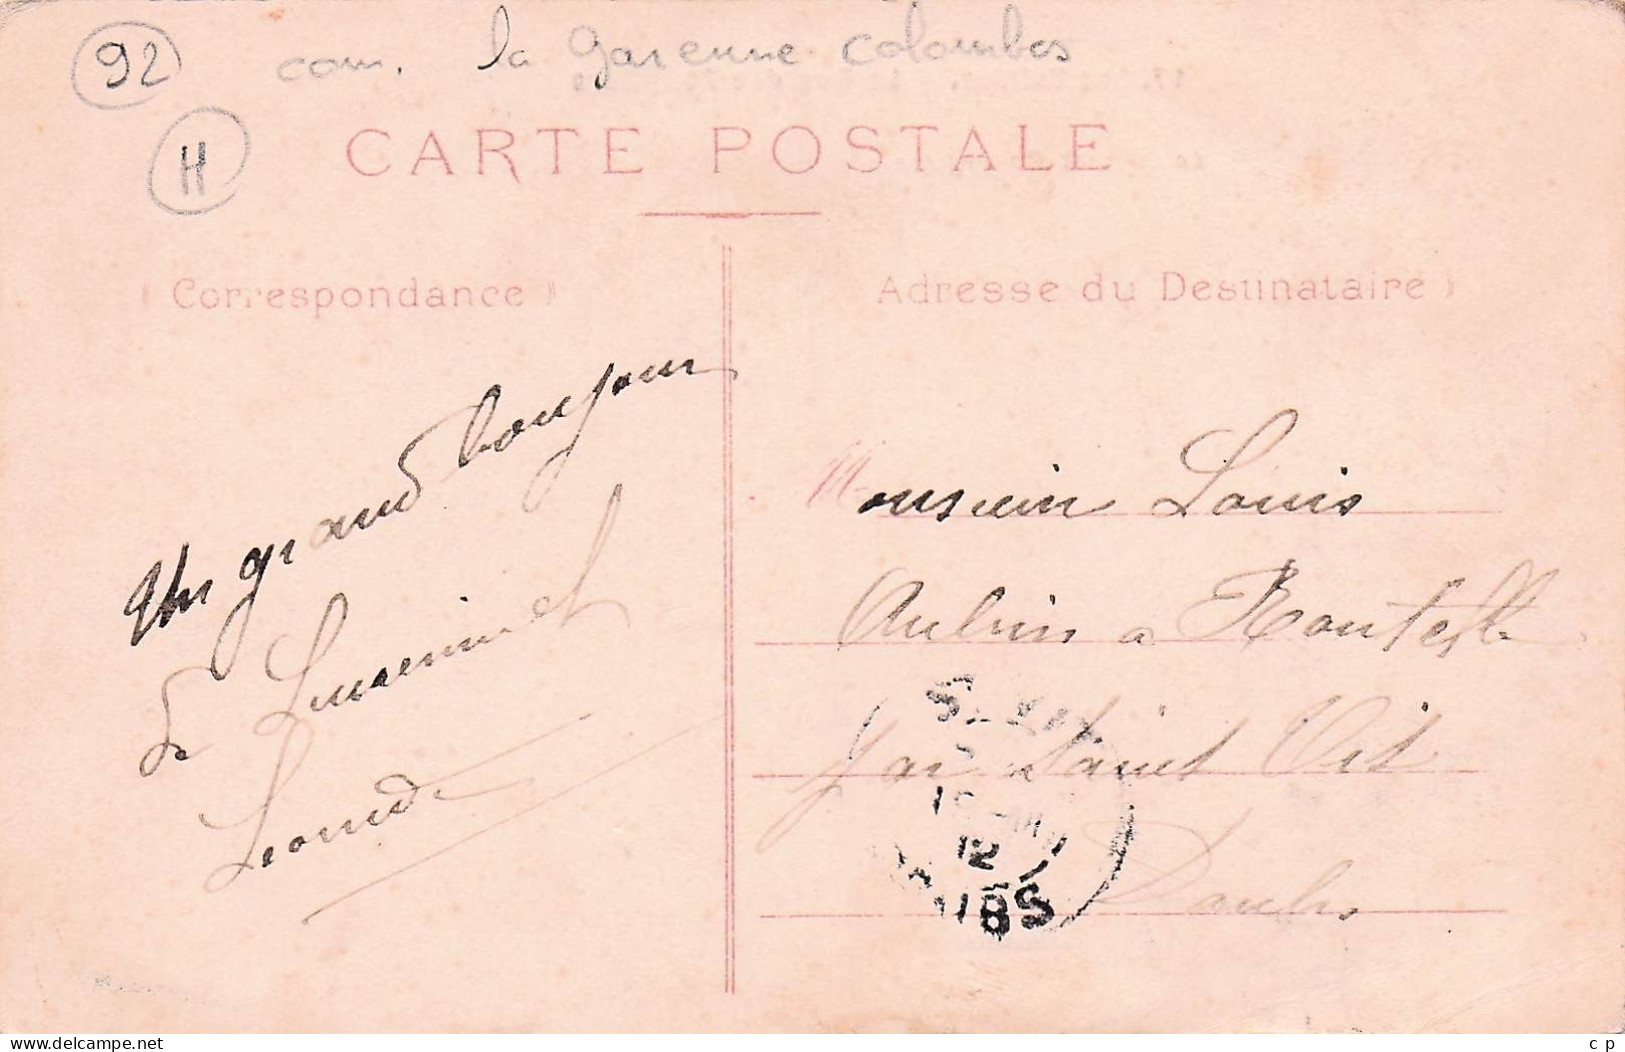 92
com. la garenne colombes
H
CARTE POSTALE
Correspondance
Adresse du Destinataire
Un grand bonjour
de et
Léonide
Monsieur Louis
Aubin a
par Saint Vit
Doubs
12
UBS
www.delcampe.net
c p